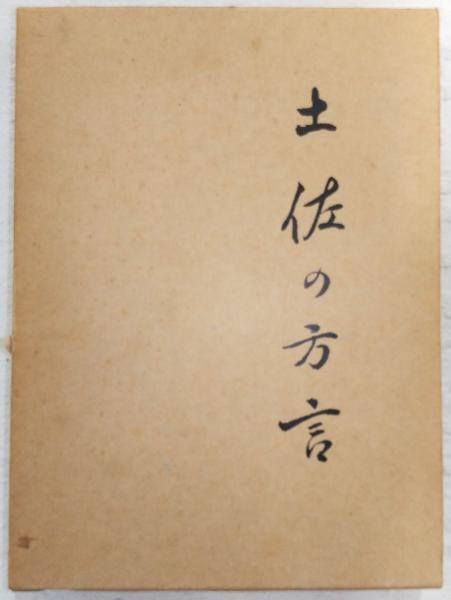 土佐の方言